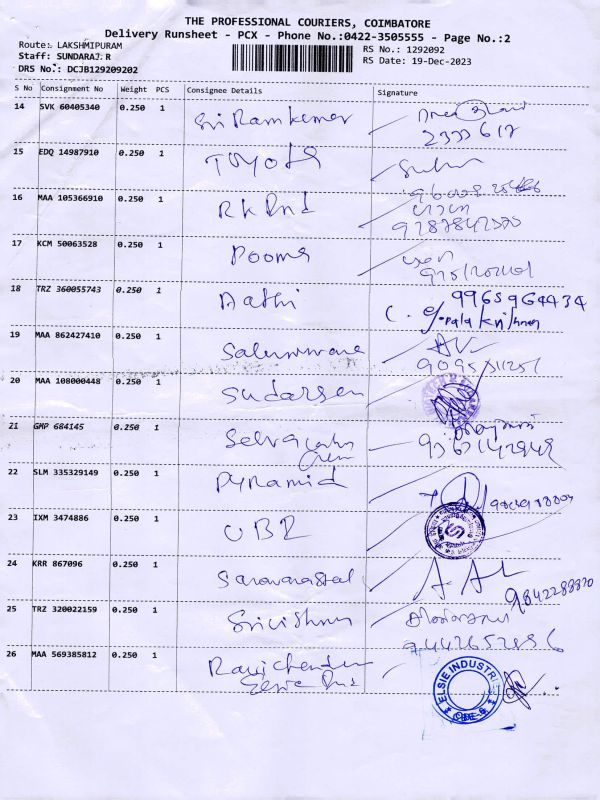 THE PROFESSIONAL COURIERS, COIMBATORE
Delivery Runsheet - PCX - Phone No.:0422-3505555 - Page No.:2
Route: LAKSHMIPURAM
Staff: SUNDARAJ.R
DRS No.: DCJB129209202
RS No.: 1292092
RS Date: 19-Dec-2023
S No Consignment No Weight PCS Consignee Details Signature
14 SVK 60405340 0.250 1 Sri Ramkumar
2333617
15 EDQ 14987910 0.250 1 TOYOTA
16 MAA 105366910 0.250 1 RK Pnd
17 KCM 50063528 0.250 1 Pooma
18 TRZ 360055743 0.250 1 Aathi 9965964434
C. Gopala Krishnan
19 MAA 862427410 0.250 1
20 MAA 108000448 0.250 1 Sudarsen
21 GMP 684145 0.250 1 Selva
22 SLM 335329149 0.250 1 Pyramid
23 IXM 3474886 0.250 1 UBR
24 KRR 867096 0.250 1 Saravanasteel
9842288820
25 TRZ 320022159 0.250 1 Srivishnu
26 MAA 569385812 0.250 1 Ravichandran
ELSIE INDUSTRIES
CBE-6